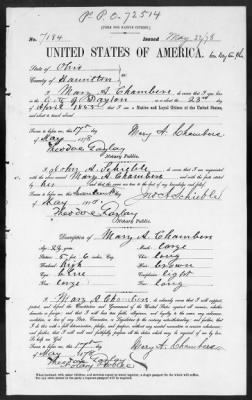 P.P.O. 72514
[FORM FOR NATIVE CITIZEN.]
No. 7184 Issued May 22/78
UNITED STATES OF AMERICA.
State of Ohio
County of Hamilton
I Mary A. Chambers do swear that I was born
in the City of Dayton on the 23rd day
of April 1855 ; that I am a Native and Loyal Citizen of the United States
Sworn to before me this 17th day
of May 1878 Mary A. Chambers
Theodore
Notary Public.
I John A. Schieble do swear that I am acquainted
with the above named Mary A. Chambers and with the facts stated by
her
Sworn to before me this day
of May 1878 Jno. A. Schieble
Theodore
Notary Public.
Description of Mary A. Chambers
Age: 23 years Mouth: large
Stature: 5 feet inches Eng. Chin: long
Forehead: high Hair: brown
Eyes: blue Complexion: light
Nose: large Face: long
I Mary A. Chambers do solemnly swear that I will support,
protect, and defend the Constitution and Government of the United States against all enemies, whether
domestic or foreign; and that I will bear true faith, allegiance, and loyalty to the same, any ordinance,
resolution, or law of any State, Convention, or Legislature to the contrary notwithstanding; and further,
that I do this with a full determination, pledge, and purpose, without any mental reservation or evasion
whatsoever; and further, that I will well and faithfully perform all the duties which may be required of me by law.
So help me God.
Sworn to before me this 17th day
of May 1878 Mary A. Chambers
Theodore
Notary Public